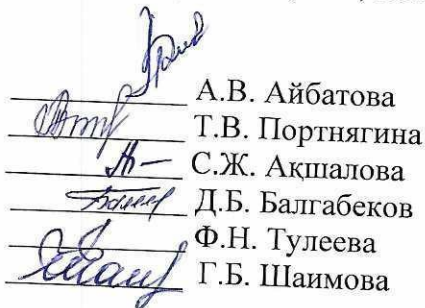 А.В. Айбатова
Т.В. Портнягина
С.Ж. Ақшалова
Д.Б. Балгабеков
Ф.Н. Тулеева
Г.Б. Шаимова